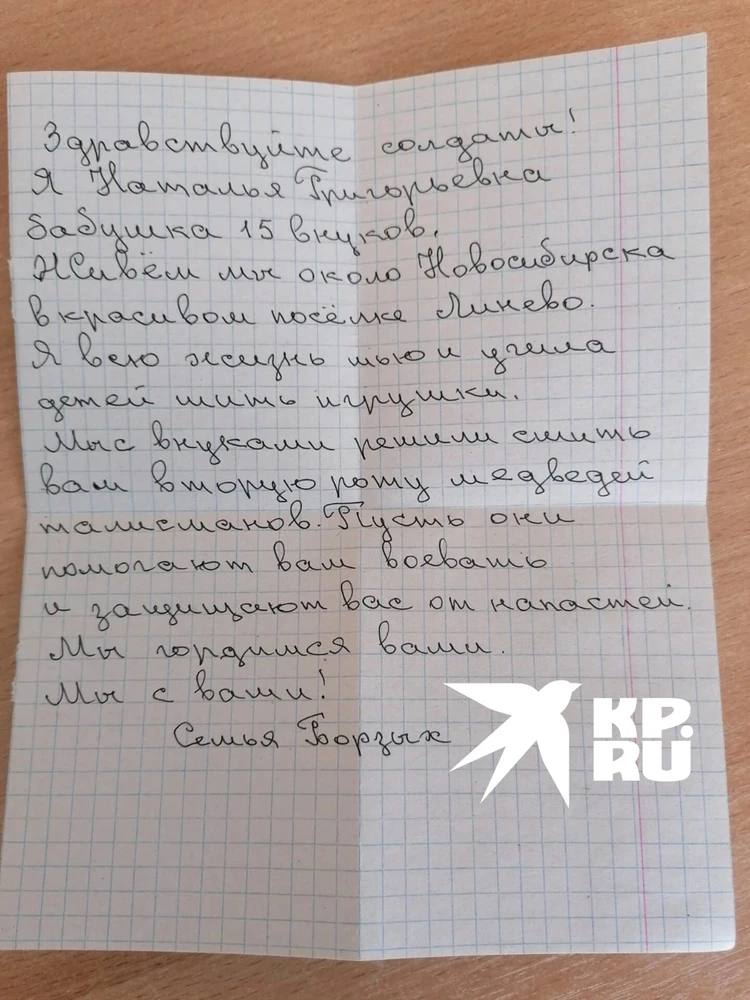 Здравствуйте солдаты!
Я Наталья Григорьевна
бабушка 15 внуков.
Живём мы около Новосибирска
в красивом посёлке Линево.
Я всю жизнь шью и учила
детей шить игрушки.
Мы с внуками решили сшить
вам вторую роту медведей
талисманов. Пусть они
помогают вам воевать
и защищают вас от напастей.
Мы гордимся вами.
Мы с вами!
Семья Борзых
KP.
RU